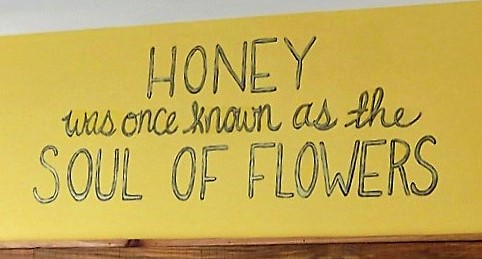 HONEY
was once known as the
SOUL OF FLOWERS